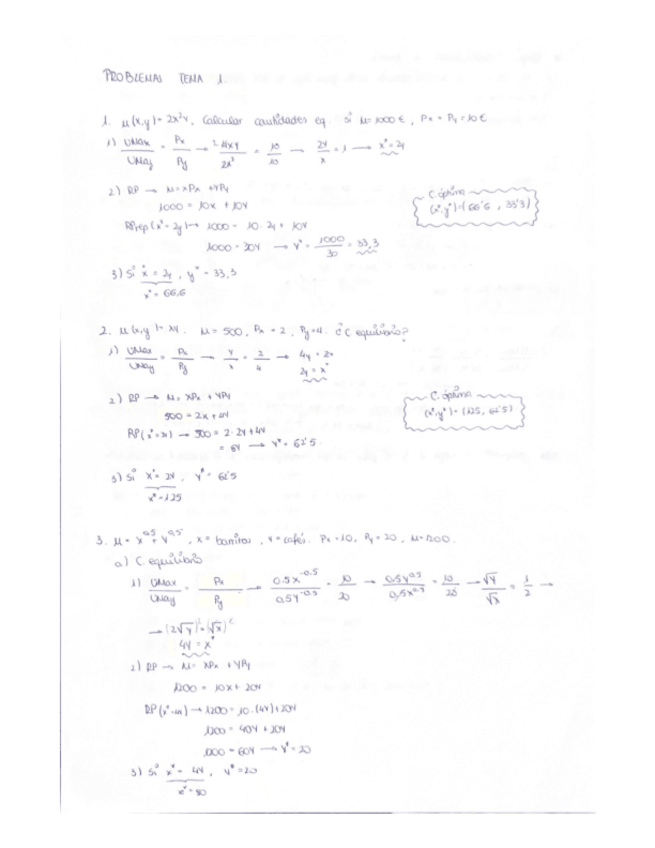 PROBLEMAS TEMA 1.
1. u(x,y) = 2x²y, Calcular cantidades eq. si M=1000€, Px = Py = 10€
1) UMax/UMay = Px/Py → 4xy/2x² = 10/10 → 2y/x = 1 → x* = 2y
2) RP → M = xPx + yPy
1000 = 10x + 10y
RP (x* = 2y) → 1000 = 10·2y + 10y
1000 = 30y → y* = 1000/30 = 33,3
C. óptima
(x*,y*) = (66'6, 33'3)
3) Si x* = 2y, y* = 33,3
x* = 66,6
2. u(x,y) = xy. M = 500, Px = 2, Py = 4. ¿C equilibrio?
1) UMax/UMay = Px/Py → y/x = 2/4 → 4y = 2x
2y = x*
2) RP → M = xPx + yPy
500 = 2x + 4y
RP (x* = 2y) → 500 = 2·2y + 4y
= 8y → y* = 62'5.
C. óptima
(x*,y*) = (125, 62'5)
3) Si x* = 2y, y* = 62'5
x* = 125
3. u = x^0,5 + y^0,5, x = barritas, y = cafés. Px = 10, Py = 20, M = 1200.
a) C. equilibrio
1) UMax/UMay = Px/Py → 0.5x^-0.5/0.5y^-0.5 = 10/20 → 0.5y^0.5/0,5x^0.5 = 10/20 → √y/√x = 1/2 →
→ (2√y)² = (√x)²
4y = x*
2) RP → M = xPx + yPy
1200 = 10x + 20y
RP (x* = 4y) → 1200 = 10·(4y) + 20y
1200 = 40y + 20y
1200 = 60y → y* = 20
3) Si x* = 4y, y* = 20
x* = 80